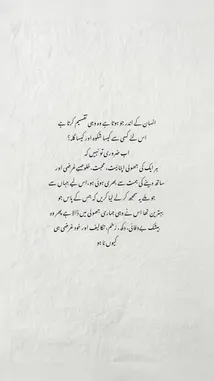 انسان کے اندر جو ہوتا ہے وہ وہی تقسیم کرتا ہے
اس لئے کسی سے کیسا شکوہ اور کیسا گلہ؟
اب ضروری تو نہیں کہ
ہر ایک کی جھولی اپنائیت، محبت، خلوص، بے غرضی اور
ساتھ دینے کی ہمت سے بھری ہوئی ہو، اس لیے جہاں سے
جو ملے یہ سمجھ کر لے لیا کریں کہ جس کے پاس جو
بہترین تھا اس نے وہی ہماری جھولی میں ڈالا ہے پھر وہ
بیشک بے وفائی، دکھ، زخم، تکالیف اور خود غرضی ہی
کیوں نا ہو